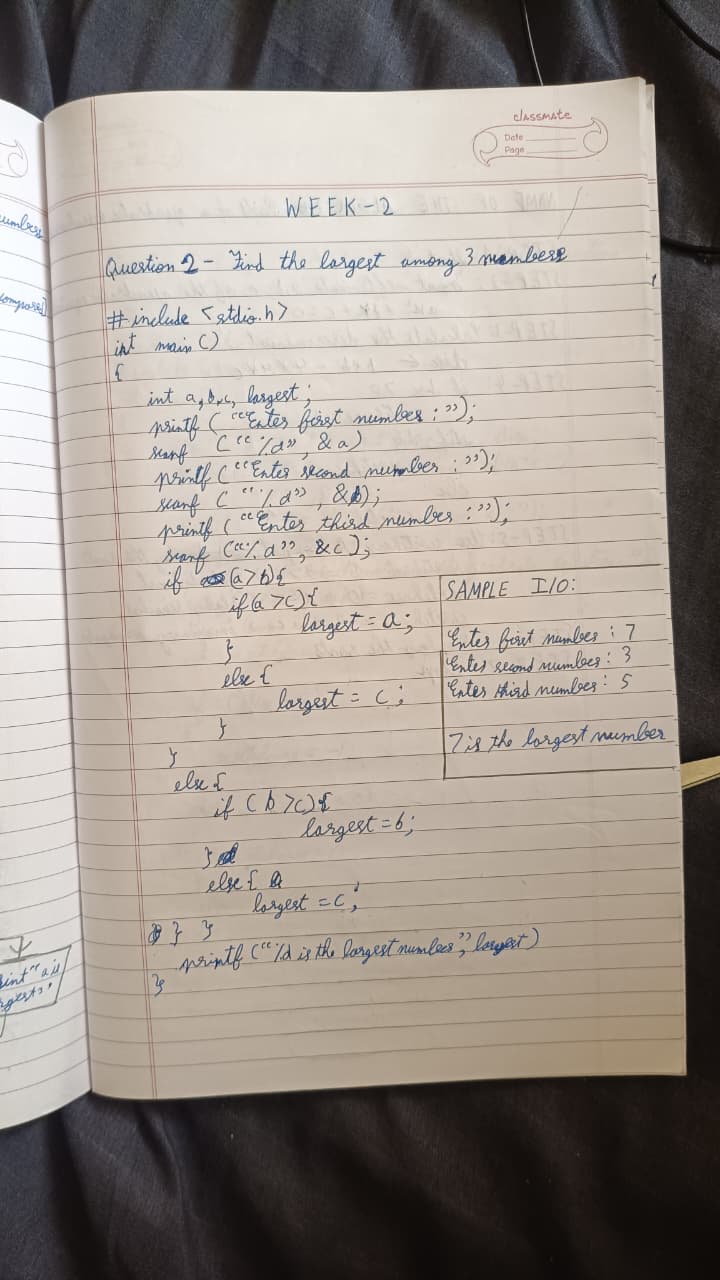 classmate
Date
Page
WEEK-2
Question 2 - Find the largest among 3 numbers
# include <stdio.h>
int main ()
{
int a, b, c, largest ;
printf ( "Enter first number : ");
scanf ( "%d" , & a)
printf ( "Enter second number : ");
scanf ( "%d" , &b);
printf ( "Enter third number : ");
scanf ("%d", &c );
if (a>b){
if(a >c){
largest = a ;
}
else {
largest = c ;
}
}
else {
if ( b >c){
largest = b;
}
else {
largest = c;
} }
printf ("%d is the largest number", largest)
}
SAMPLE I/O:
Enter first number : 7
Enter second number : 3
Enter third number : 5
7 is the largest number
umbers
print" a is